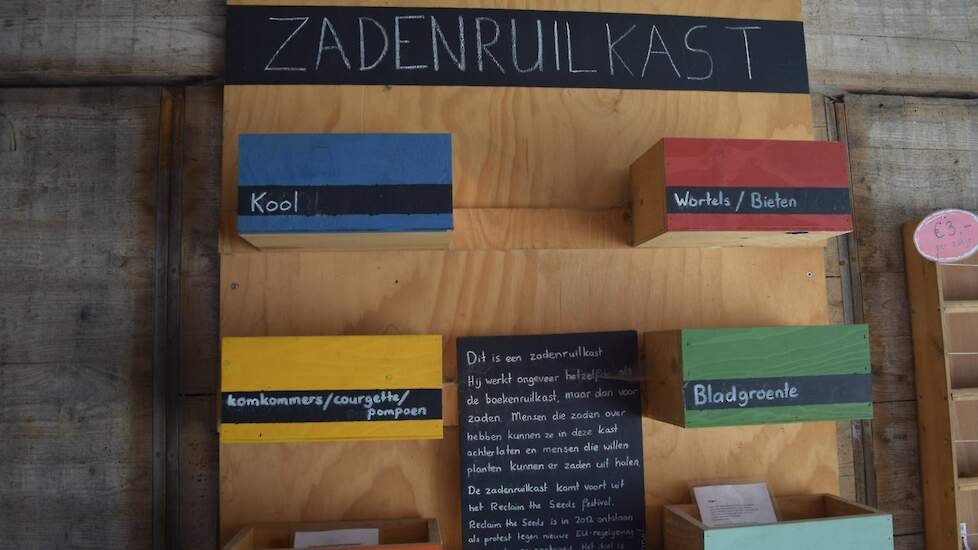 ZADENRUILKAST
Kool
Wortels / Bieten
€3,-
komkommers/courgette/
pompoen
Bladgroente
Dit is een zadenruilkast
Hij werkt ongeveer hetzelfde als
de boekenruilkast, maar dan voor
zaden. Mensen die zaden over
hebben kunnen ze in deze kast
achterlaten en mensen die willen
planten kunnen er zaden uit halen.
De zadenruilkast komt voort uit
het Reclaim the Seeds festival.
Reclaim the Seeds is in 2012 ontstaan
als protest tegen nieuwe EU-regelgeving